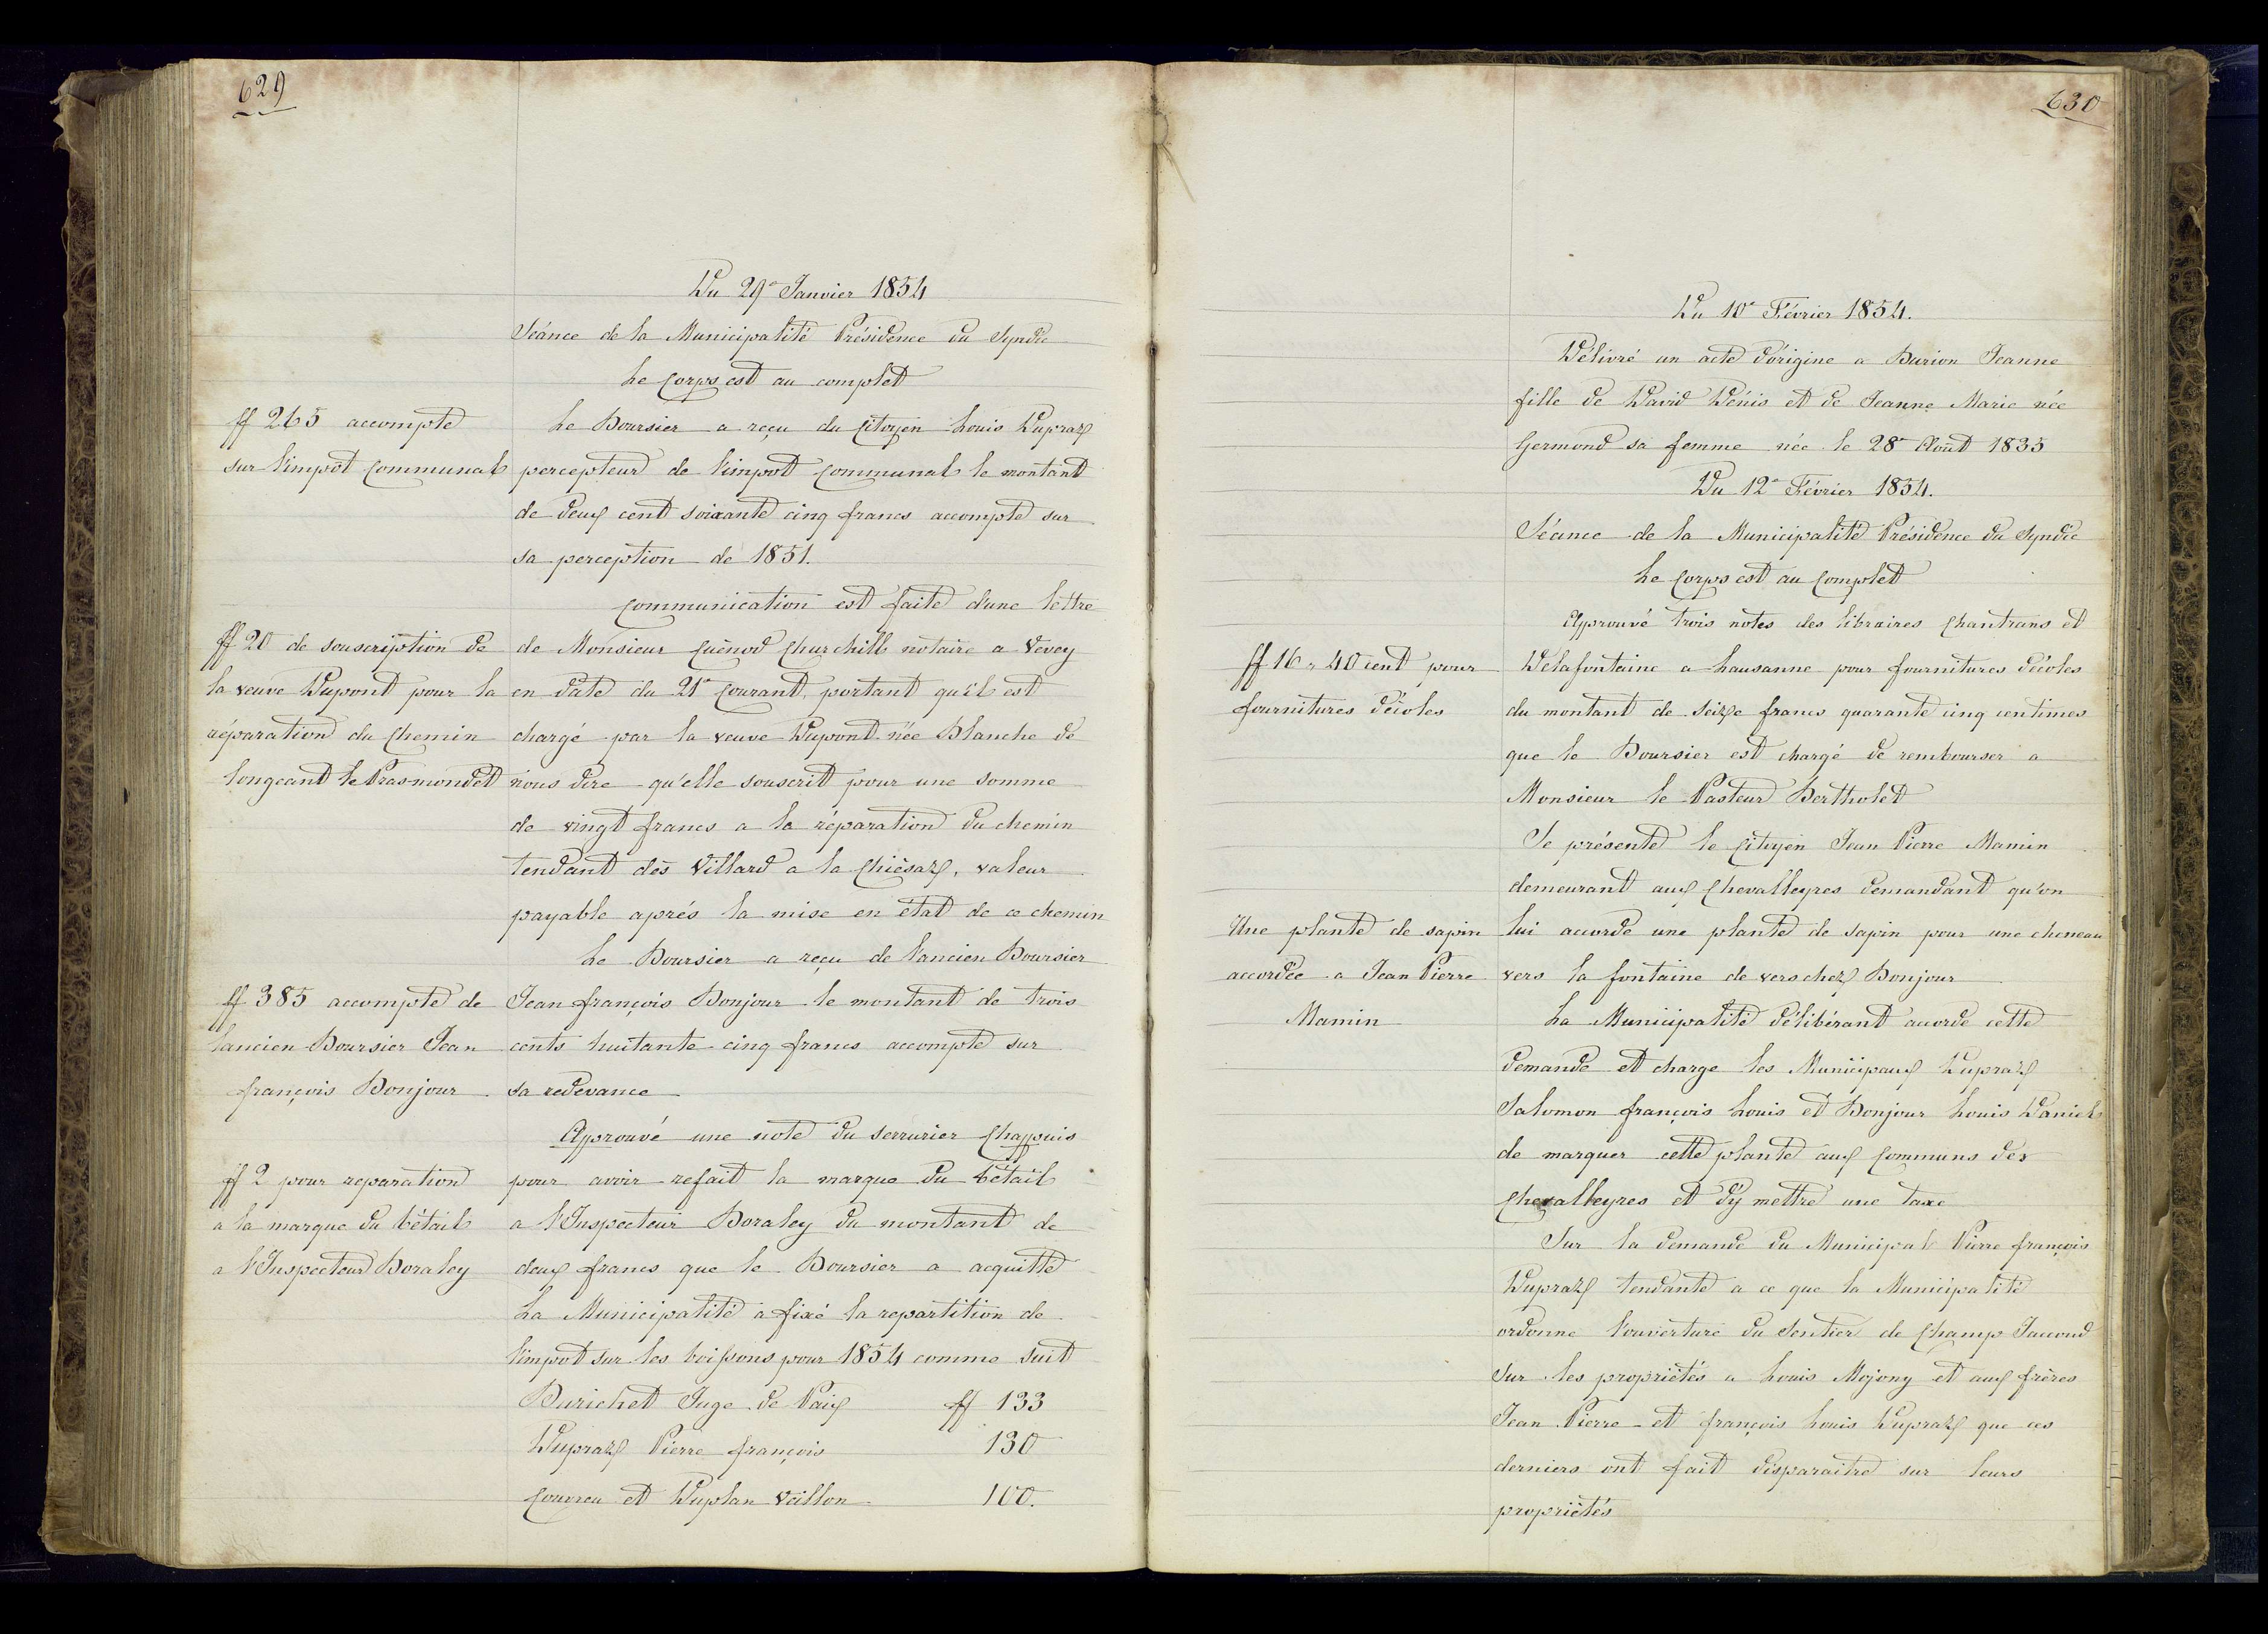 629
Du 29e Janvier 1854
Séance de la Municipalité Présidence du Syndic
Le Corps est au complet
ff 265 accompte
sur l'impot Communal
Le Boursier a reçu du Citoyen Louis Dupraz
percepteur de l'impot Communal le montant
de deux cent soixante cinq francs accompte sur
sa perception de 1851.
Communication est faite d'une lettre
ff 20 de souscription de
la veuve Dupont pour la
réparation du Chemin
longeant le Prasmondet
de Monsieur Cuènod Churchill notaire a Vevey
en date du 21e Courant, portant qu'il est
chargé par la veuve Dupont née Blanche de
nous dire qu'elle souscrit pour une somme
de vingt francs a la réparation du chemin
tendant dès Villard a la Chièsaz, valeur
payable après la mise en état de ce chemin
Le Boursier a reçu de l'ancien Boursier
ff 385 accompte de
lancien Boursier Jean
françois Bonjour
Jean françois Bonjour le montant de trois
cents huitante cinq francs accompte sur
sa redevance
Approuvé une note du serrurier Chappuis
ff 2 pour reparation
à la marque du bétail
a l'Inspecteur Boraley
pour avoir refait la marque du bétail
a l'Inspecteur Boraley du montant de
deux francs que le Boursier a acquitté
La Municipalité a fixé la repartition de
l'impot sur les boissons pour 1854 comme suit
Burichet Juge de Paix ff 133
Dupraz Pierre françois 130
Couvreu et Duplan Veillon 100.
630
Du 10e Février 1854.
Délivré un acte d'origine a Burion Jeanne
fille de David Dénis et de Jeanne Marie née
Germond sa femme née le 28e Août 1835
Du 12e Février 1854.
Séance de la Municipalité Présidence du Syndic
Le Corps est au Complet
Approuvé trois notes des libraires Chantrans et
ff 16 " 40 cent pour
fournitures d'écoles
Delafontaine a Lausanne pour fournitures d'écoles
du montant de seize francs quarante cinq centimes
que le Boursier est chargé de rembourser a
Monsieur le Pasteur Bertholet
Se présente le Citoyen Jean Pierre Mamin
demeurant aux Chevalleyres demandant qu'on
Une plante de sapin
accordée a Jean Pierre
Mamin
lui accorde une plante de sapin pour une cheneau
vers la fontaine de vers chez Bonjour
La Municipalité délibérant accorde cette
demande et charge les Municipaux Dupraz
Salomon françois Louis et Bonjour Louis Daniel
de marquer cette plante aux Communs des
Chevalleyres et d'y mettre une taxe
Sur la demande du Municipal Pierre françois
Dupraz tendante a ce que la Municipalité
ordonne l'ouverture du Sentier de Champ Jaccoud
sur les propriétés a Louis Mojony et aux frères
Jean Pierre et françois Louis Dupraz que ces
derniers ont fait disparaitre sur leurs
propriétés